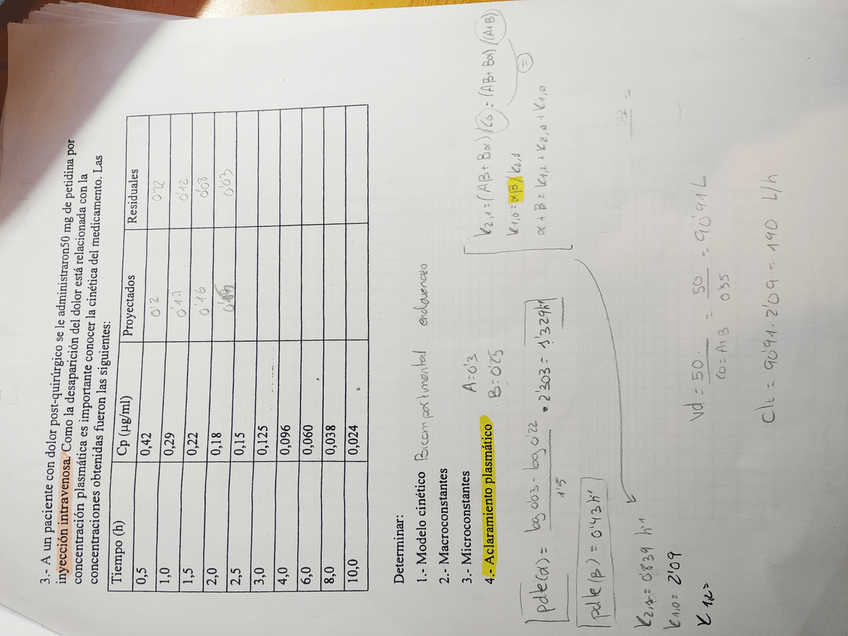 3.- A un paciente con dolor post-quirúrgico se le administraron50 mg de petidina por
inyección intravenosa. Como la desaparición del dolor está relacionada con la
concentración plasmática es importante conocer la cinética del medicamento. Las
concentraciones obtenidas fueron las siguientes:
Tiempo (h) Cp (µg/ml) Proyectados Residuales
0,5 0,42 0'2 0'22
1,0 0,29 0'17 0'12
1,5 0,22 0'16 0'03
2,0 0,18 0'03
2,5 0,15
3,0 0,125
4,0 0,096
6,0 0,060
8,0 0,038
10,0 0,024
Determinar:
1.- Modelo cinético Bicompartimental endovenoso
2.- Macroconstantes A=0'3
B=0'25
3.- Microconstantes
4.- Aclaramiento plasmático
k2,1 = (AB + Bα)/C0 = (AB + Bα)/(A+B)
k1,0 = αβ/k2,1
α + β = k1,2 + k2,1 + k1,0
pdte(α) = log 0'03 - log 0'22 / 1'5 · 2'303 = 1'329 h-1
pdte(β) = 0'43 h-1
k2,1 = 0'839 h-1
k1,0 = 2'09
k1,2 =
Vd = 50 / C0 = A+B = 50 / 0'55 = 90'91 L
Clt = 90'91 · 2'09 = 190 L/h